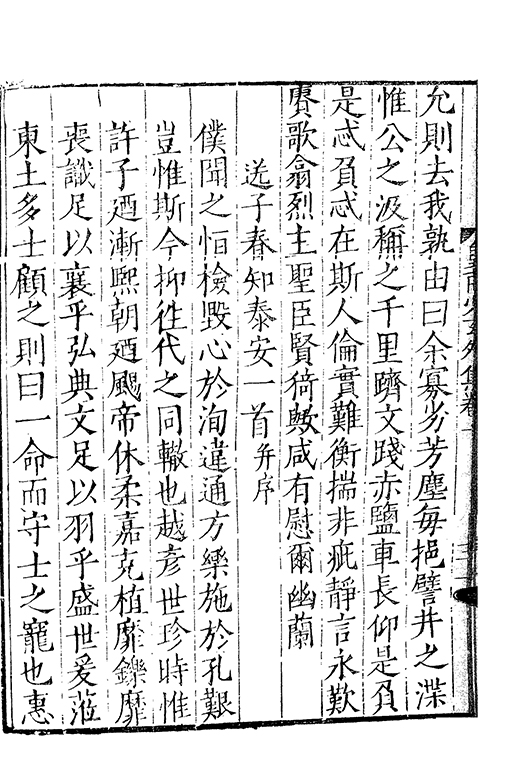 允則去我孰由曰余寡劣芳塵每挹譬井之渫
惟公之汲稱之千里躋文踐赤鹽車長仰是負
是忒負忒在斯人倫實難衡揣非疵靜言永歎
賡歌翕烈主聖臣賢猗歟咸有慰爾幽蘭
送子春知泰安一首并序
僕聞之恒檢毀心於洵違通方樂施於孔艱
豈惟斯今抑徃代之同轍也越彥世珍時惟
許子廼漸熈朝廼颺帝休柔嘉克植靡鑠靡
喪識足以襄乎弘典文足以羽乎盛世爰蒞
東土多士顧之則曰一命而守士之寵也惠